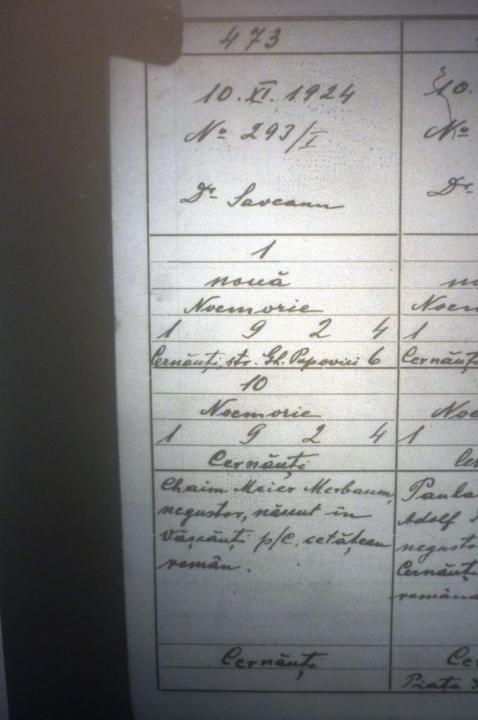 473
10. XI. 1924
No 293/I
Dr Saveanu
1
nouă
Noemvrie
1 9 2 4
Cernăuți, str. Gh. Popovici 6
10
Noemvrie
1 9 2 4
Cernăuți
Chaim Meier Merbaum,
negustor, născut în
Vășcăuți p/C. cetățean
român.
Cernăuți
10.
No
Dr
no
Noem
1
Cernăuți
Noe
1
Cer
Paula
Adolf
negusto
Cernăuți
română
Ce
Piața